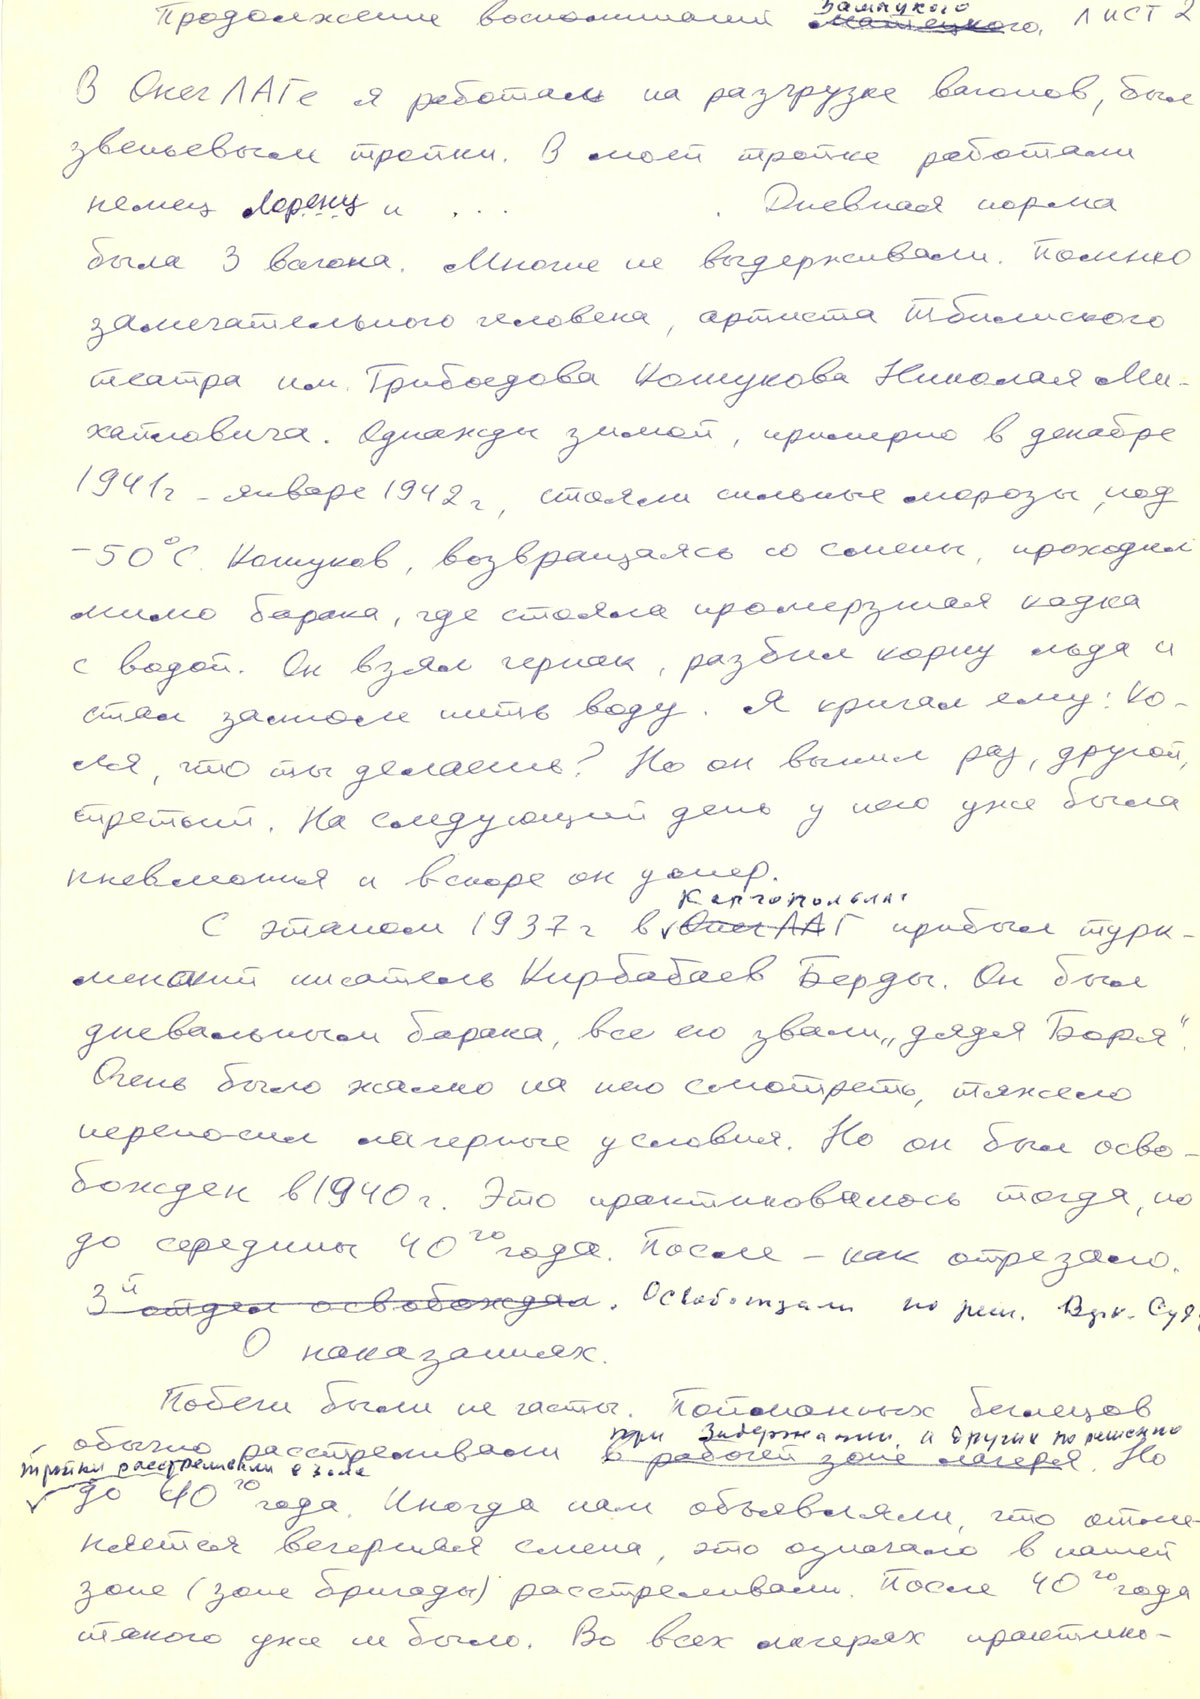 Продолжение воспоминаний Зампукого Матецкого. ЛИСТ 2
В ОнегЛАГе я работал на разгрузке вагонов, был
звеньевым тройки. В моей тройке работали
немец Лоренц и . . . . Дневная норма
была 3 вагона. Многие не выдерживали. Помню
замечательного человека, артиста Тбилиского
театра им. Грибоедова Кошукова Николая Ми-
хайловича. Однажды зимой, примерно в декабре
1941г - январе 1942г, стояли сильные морозы, под
-50°С. Кошуков, возвращаясь со смены, проходил
мимо барака, где стояла промерзшая кадка
с водой. Он взял черпак, разбил корку льда и
стал залпом пить воду. Я кричал ему: Ко-
ля, что ты делаешь? Но он выпил раз, другой,
третий. На следующий день у него уже была
пневмония и вскоре он умер.
Каргопольлаг
С этапом 1937г в ОнегЛАГ прибыл турк-
менский писатель Кирбабаев Берды. Он был
дневальным барака, все его звали „дядя Боря".
Очень было жалко на него смотреть, тяжело
переносил лагерные условия. Но он был осво-
божден в 1940г. Это практиковалось тогда, но
до середины 40го года. После - как отрезало.
3й отдел освобождал. Освобождали по реш. Верх. Суда
О наказаниях.
Побеги были не часты. Пойманных беглецов
при задержании, а других по решению
обычно расстреливали в рабочей зоне лагеря. Но
тройки расстреляли в зоне
до 40го года. Иногда нам объявляли, что отме-
няется вечерняя смена, это означало в нашей
зоне (зоне бригады) расстреливали. После 40го года
такого уже не было. Во всех лагерях практико-